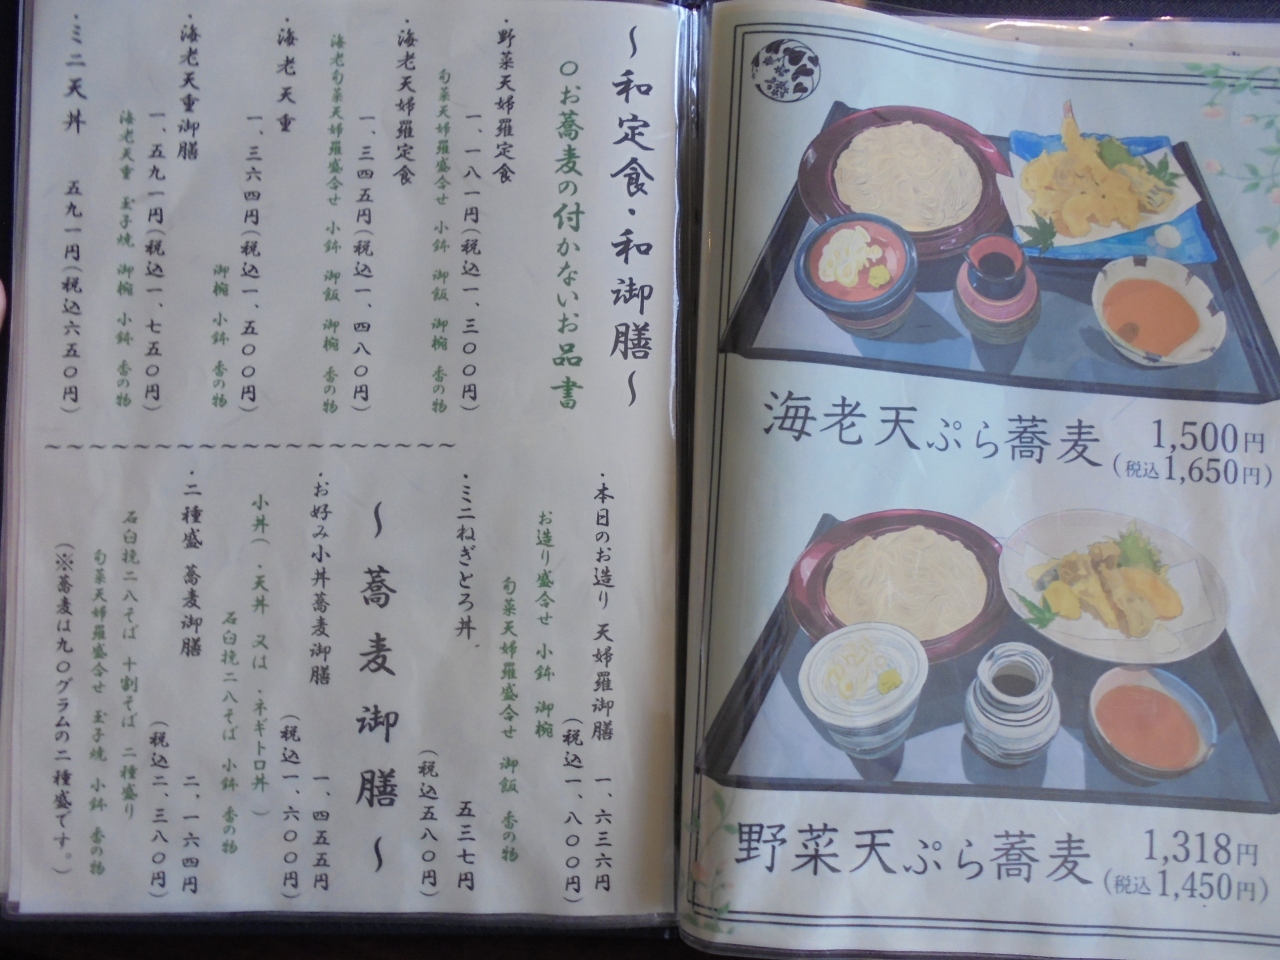 ～和定食・和御膳～
〇お蕎麦の付かないお品書
・野菜天婦羅定食
一、一八一円(税込一、三〇〇円)
旬菜天婦羅盛合せ 小鉢 御飯 御椀 香の物
・海老天婦羅定食
一、三四五円(税込一、四八〇円)
海老旬菜天婦羅盛合せ 小鉢 御飯 御椀 香の物
・海老天重
一、三六四円(税込一、五〇〇円)
御椀 小鉢 香の物
・海老天重御膳
一、五九一円(税込一、七五〇円)
海老天重 玉子焼 御椀 小鉢 香の物
・ミニ天丼 五九一円(税込六五〇円)
～～～～～～～～～～～～～～～～～～～
・本日のお造り 天婦羅御膳 一、六三六円
(税込一、八〇〇円)
お造り盛合せ 小鉢 御椀
旬菜天婦羅盛合せ 御飯 香の物
・ミニねぎとろ丼 五三七円
(税込五八〇円)
～蕎麦御膳～
・お好み小丼蕎麦御膳 一、四五五円
(税込一、六〇〇円)
小丼(・天丼 又は ・ネギトロ丼 )
石臼挽二八そば 小鉢 香の物
・二種盛 蕎麦御膳 二、一六四円
(税込二、三八〇円)
石臼挽二八そば 十割そば 二種盛り
旬菜天婦羅盛合せ 玉子焼 小鉢 香の物
(※蕎麦は九〇グラムの二種盛です。)
海老天ぷら蕎麦 1,500円
(税込1,650円)
野菜天ぷら蕎麦 1,318円
(税込1,450円)